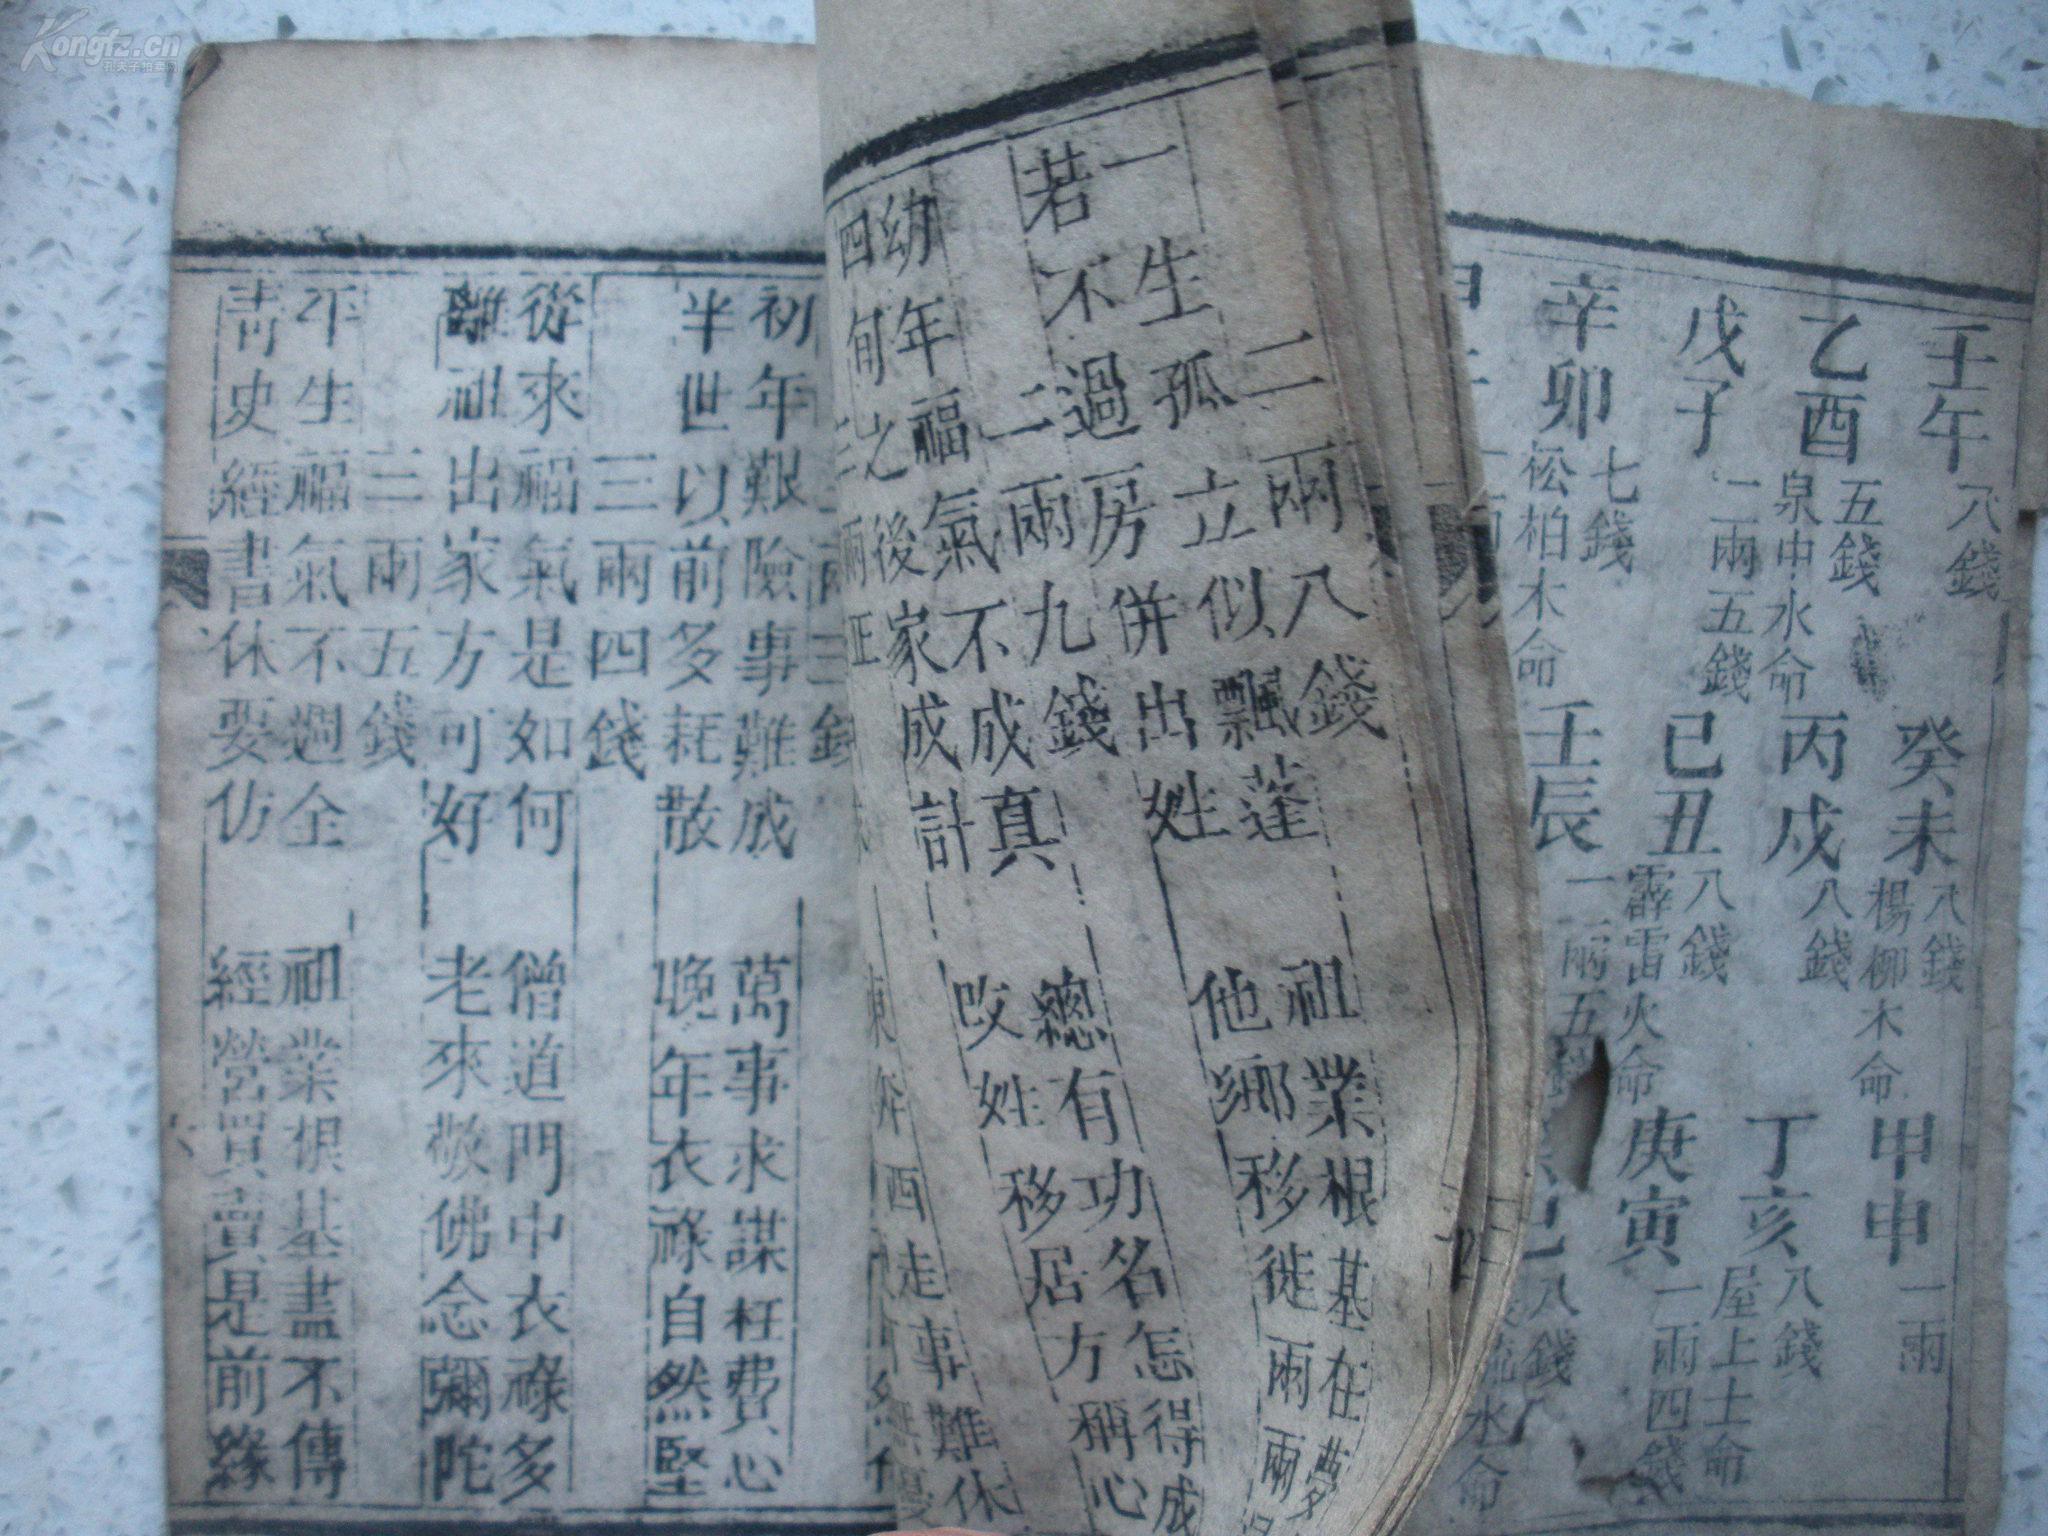 Kongfz.cn
孔夫子拍卖网
壬午
八錢
楊柳木命
癸未
八錢
甲申
一兩
乙酉
五錢
泉中水命
丙戌
八錢
丁亥
八錢
屋上土命
戊子
一兩五錢
霹雷火命
己丑
八錢
庚寅
一兩四錢
辛卯
七錢
松柏木命
壬辰
一兩五錢
巳
八錢
流水命
二兩八錢
一生孤立似飄蓬 祖業根基在夢
若不過房併出姓 他鄉移徙兩兩
二兩九錢
幼年福氣不成真 總有功名怎得成
四旬之後家成計 改姓移居方稱心
三兩正
東奔西走事難休
三錢
初年艱險事難成 萬事求謀枉費心
半世以前多耗散 晚年衣祿自然堅
三兩四錢
從來福氣是如何 僧道門中衣祿多
離祖出家方可好 老來敬佛念彌陀
三兩五錢
平生福氣不週全 祖業根基盡不傳
青史經書休要仿 經營買賣是前緣